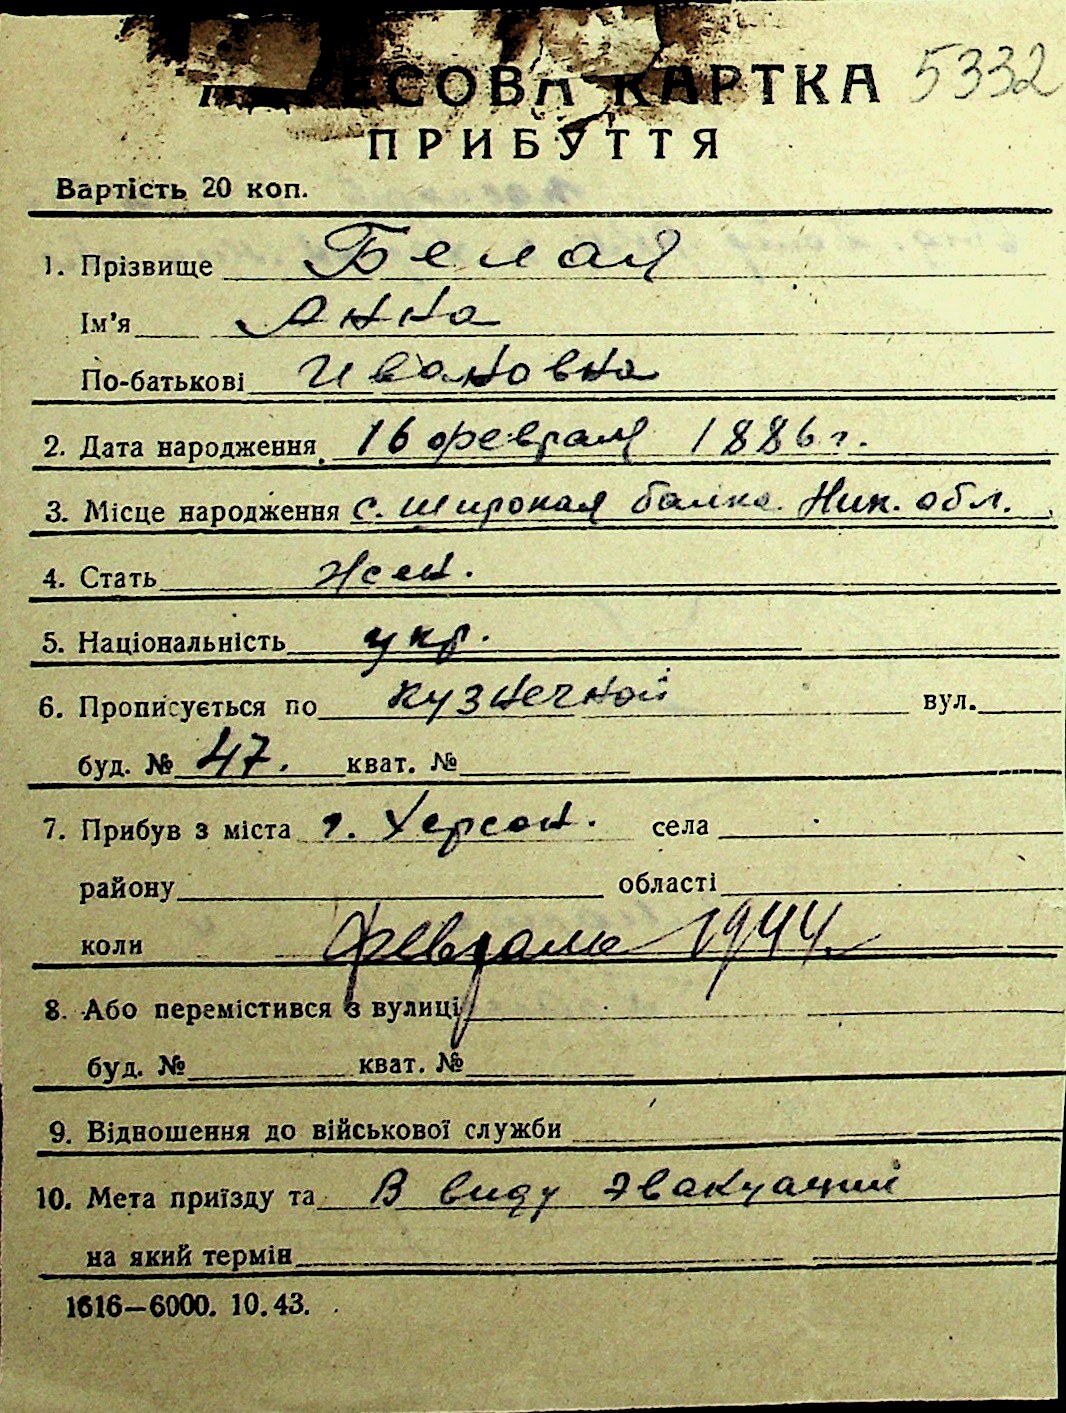 АДРЕСОВА КАРТКА 5332
ПРИБУТТЯ
Вартість 20 коп.
1. Прізвище Белая
Ім'я Анна
По-батькові Ивановна
2. Дата народження 16 февраля 1886 г.
3. Місце народження с. Широкая балка Ник. обл.
4. Стать жен.
5. Національність укр.
6. Прописується по Кузнечной вул.
буд. № 47. кват. №
7. Прибув з міста г. Херсон. села
району області
коли февраль 1944
8. Або перемістився з вулиці
буд. № кват. №
9. Відношення до військової служби
10. Мета приїзду та В виду эвакуации
на який термін
1616—6000. 10.43.